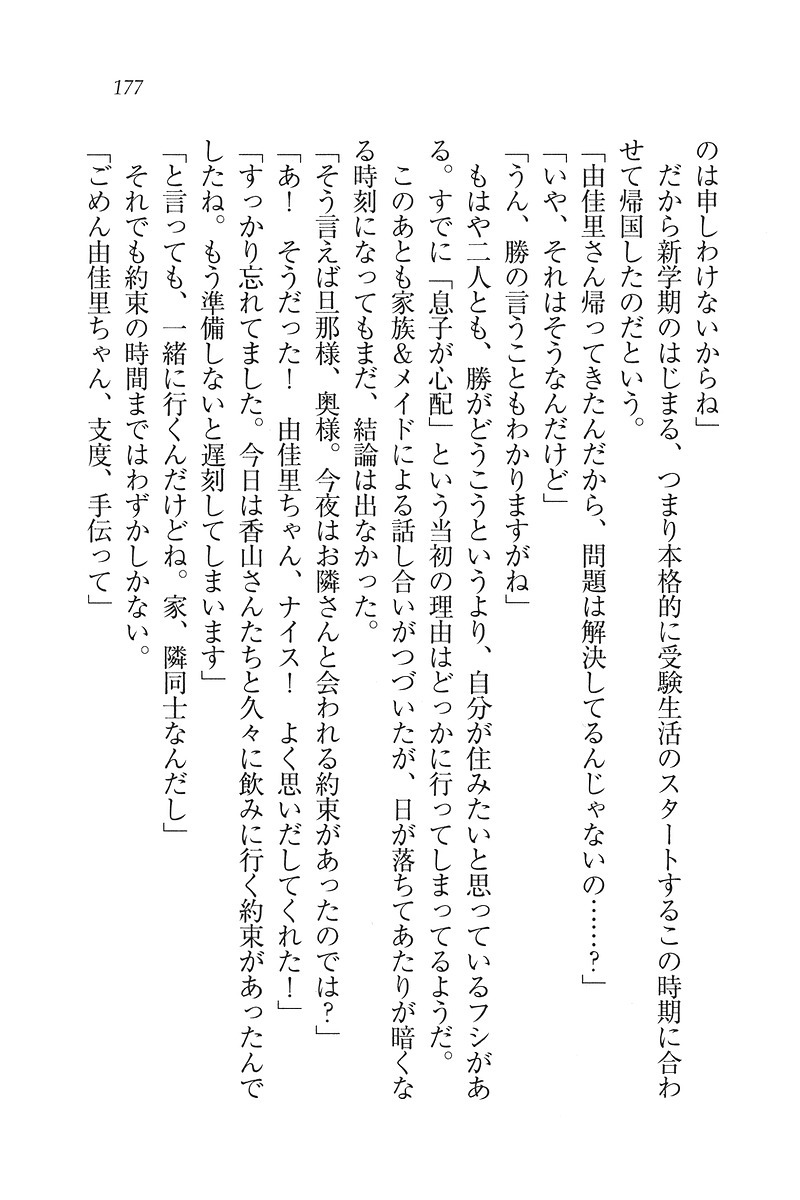 177
のは申しわけないからね」
　だから新学期のはじまる、つまり本格的に受験生活のスタートするこの時期に合わ
せて帰国したのだという。
「由佳里さん帰ってきたんだから、問題は解決してるんじゃないの……？」
「いや、それはそうなんだけど」
「うん、勝の言うこともわかりますがね」
　もはや二人とも、勝がどうこうというより、自分が住みたいと思っているフシがあ
る。すでに「息子が心配」という当初の理由はどっかに行ってしまってるようだ。
　このあとも家族＆メイドによる話し合いがつづいたが、日が落ちてあたりが暗くな
る時刻になってもまだ、結論は出なかった。
「そう言えば旦那様、奥様。今夜はお隣さんと会われる約束があったのでは？」
「あ！　そうだった！　由佳里ちゃん、ナイス！　よく思いだしてくれた！」
「すっかり忘れてました。今日は香山さんたちと久々に飲みに行く約束があったんで
したね。もう準備しないと遅刻してしまいます」
「と言っても、一緒に行くんだけどね。家、隣同士なんだし」
　それでも約束の時間まではわずかしかない。
「ごめん由佳里ちゃん、支度、手伝って」